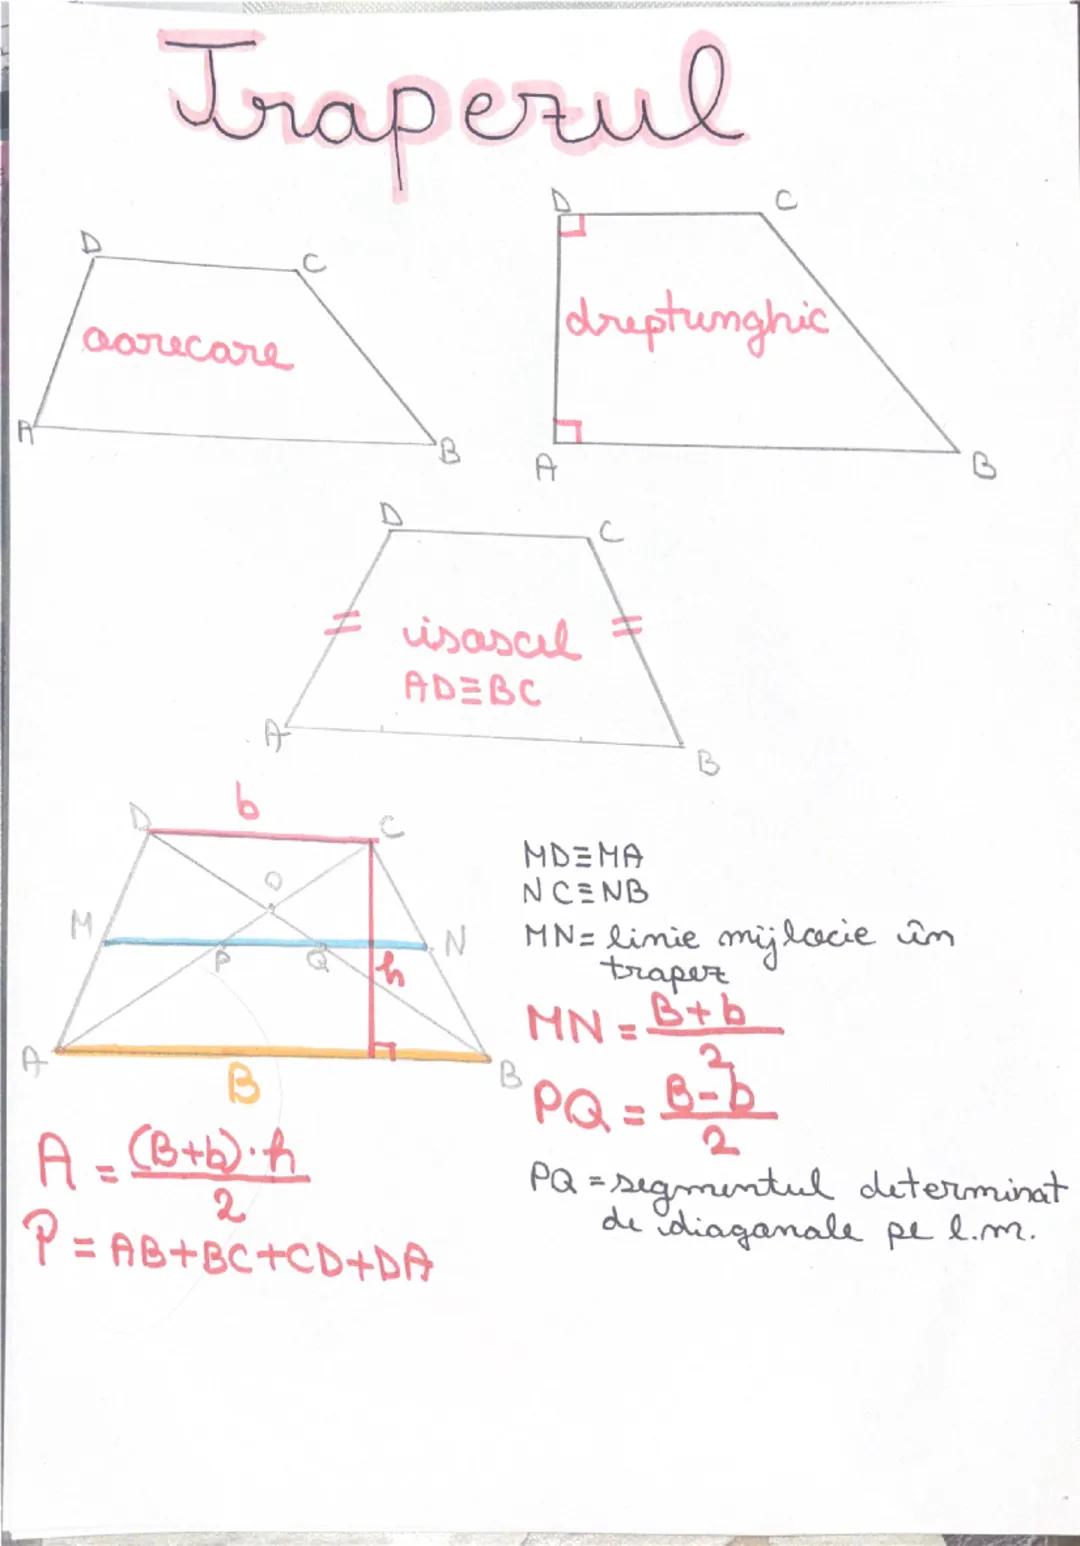 Trapezul
D
C
oarecare
A
B
D
C
dreptunghic
A
B
D
C
isoscel
AD≡BC
A
B
b
D
C
O
M
N
P
Q
h
A
B
B
MD≡MA
NC≡NB
MN= linie mijlocie în
trapez
MN = B+b
2
PQ = B-b
2
PQ = segmentul determinat
de diagonale pe l.m.
A = (B+b)·h
2
P = AB+BC+CD+DA